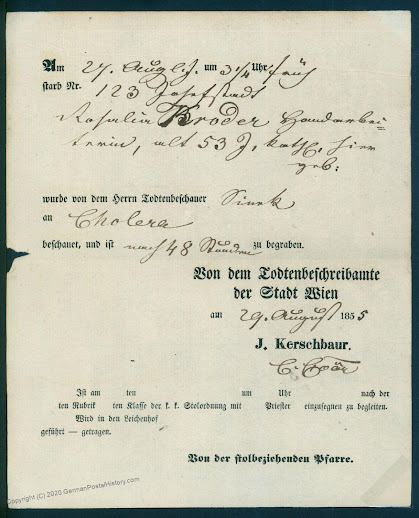 Am 27. Aug. l. J. um 3 1/4 Uhr früh
starb Nr. 123 Josefstadt
Rosalia Broder Handarbei=
terin, alt 53 J, kath. hier
geb:
wurde von dem Herrn Todtenbeschauer
an Cholera
beschauet, und ist nach 48 Stunden zu begraben.
Von dem Todtenbeschreibamte
der Stadt Wien
am 29. August 1855
J. Kerschbaur.
Ist am ten um Uhr nach der
ten Rubrik ten Klasse der k. k. Stolordnung mit Priester einzusegnen zu begleiten.
Wird in den Leichenhof
geführt — getragen.
Von der stolbeziehenden Pfarre.
Copyright (C) 2020 GermanPostalHistory.com